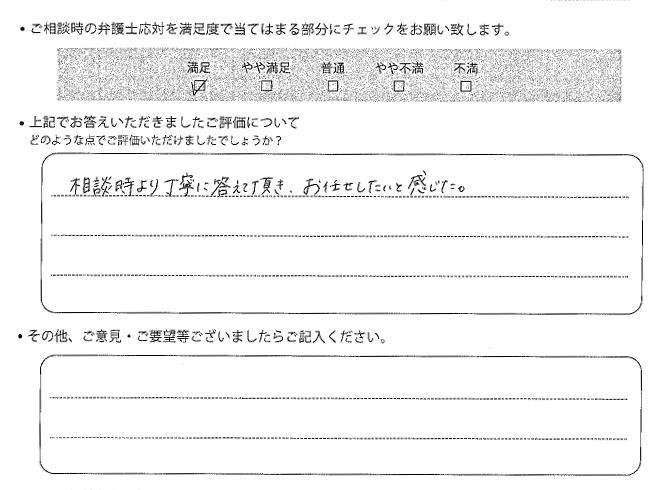 ・ご相談時の弁護士応対を満足度で当てはまる部分にチェックをお願い致します。
満足 やや満足 普通 やや不満 不満
☑ □ □ □ □
・上記でお答えいただきましたご評価について
どのような点でご評価いただけましたでしょうか？
相談時より丁寧に答えて頂き、お任せしたいと感じた。
・その他、ご意見・ご要望等ございましたらご記入ください。